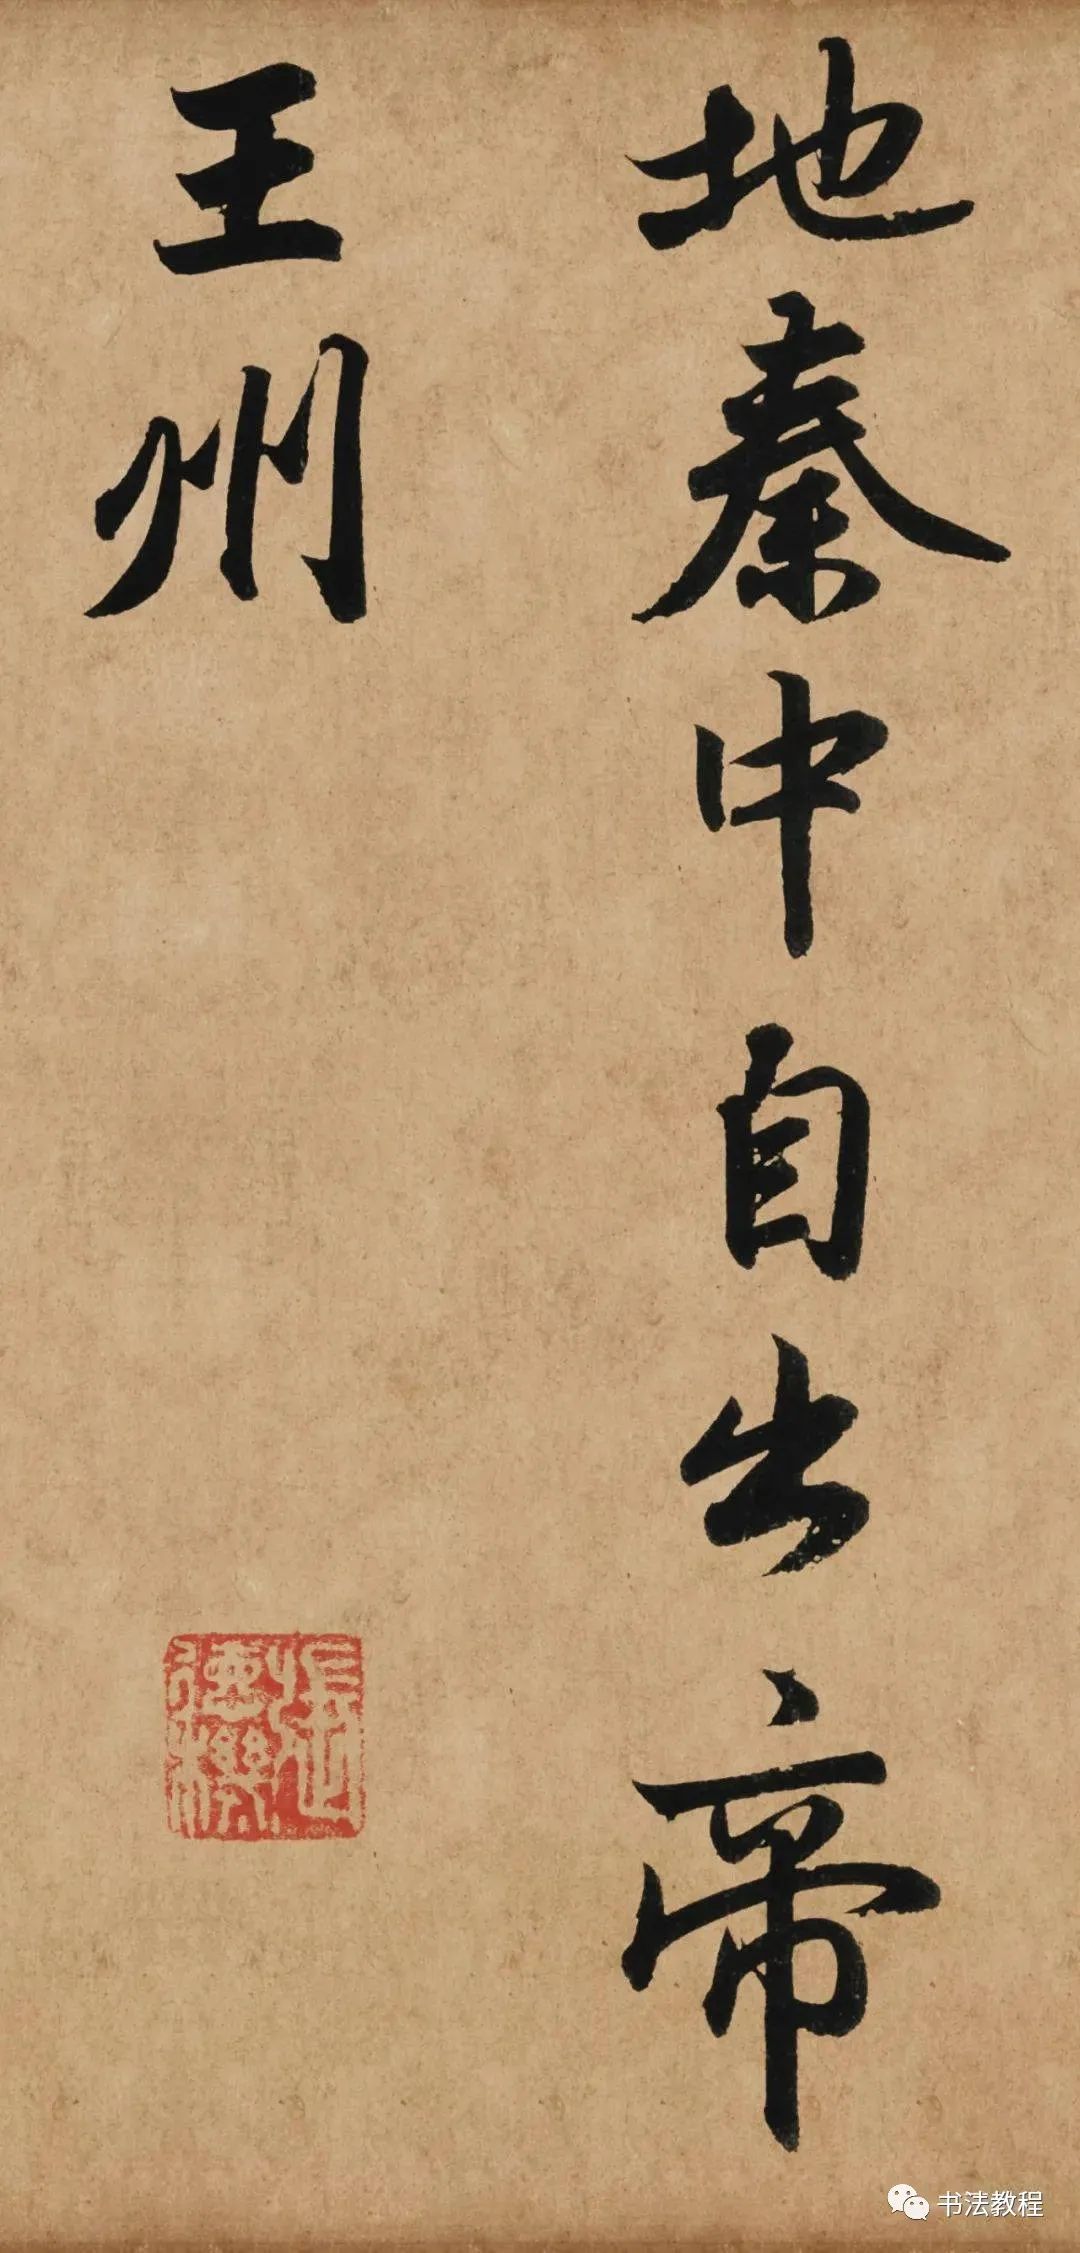 地秦中自出帝
王州
書法教程